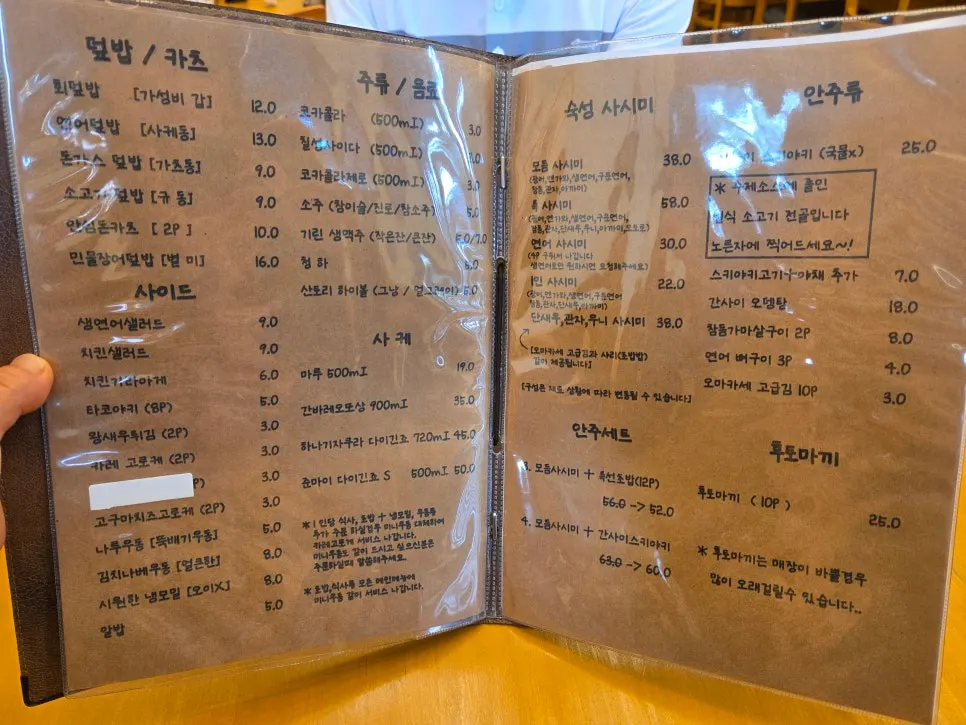 덮밥 / 카츠
회덮밥 [가성비 갑] 12.0
연어덮밥 [사케동] 13.0
돈가스 덮밥 [가츠동] 9.0
소고기덮밥 [규동] 9.0
안심돈카츠 [2P] 10.0
민물장어덮밥 [별미] 16.0
사이드
생연어샐러드 9.0
치킨샐러드 9.0
치킨가라아게 6.0
타코야키 (8P) 5.0
왕새우튀김 (2P) 3.0
카레 고로케 (2P) 3.0
P) 3.0
고구마치즈고로케 (2P) 3.0
나루우동 [뚝배기우동] 5.0
김치나베우동 [얼큰한] 8.0
시원한 냉모밀 [오이X] 8.0
알밥 5.0
주류 / 음료
코카콜라 (500mI) 3.0
칠성사이다 (500mI)
코카콜라제로 (500mI) 3.0
소주 (참이슬/진로/참소주) 5.0
기린 생맥주 (작은잔/큰잔) 5.0/7.0
청하 5.0
산토리 하이볼 (그냥 / 얼그레이) 5.0
사케
마루 500mI 19.0
간바레오또상 900mI 35.0
하나기자쿠라 다이긴죠 720mI 45.0
쥰마이 다이긴죠 S 500mI 50.0
* 1인당 식사, 초밥 + 냉모밀, 우동류
추가 주문 하실경우 미니우동 대체하여
카레고로케 서비스 나갑니다.
미니우동도 같이 드시고 싶으신분은
주문하실때 말씀해주세요.
* 초밥,식사류 모든 메인메뉴에
미니우동 같이 서비스 나갑니다.
숙성 사시미
모듬 사시미 38.0
(광어,연가와,생연어,구운연어,
참돔,관자,아까미)
특 사시미 58.0
(광어,연가와,생연어,구운연어,
참돔,관자,단새우,우니,아까미,오도로)
연어 사시미 30.0
(4P 구워서 나갑니다
생연어로만 원하시면 요청해주세요)
1인 사시미 22.0
(광어,연가와,생연어,구운연어
참돔,관자,단새우,아까미)
단새우,관자,우니 사시미 38.0
[오마카세 고급김과 샤리(초밥밥)
같이 제공됩니다]
[구성은 재료 상황에 따라 변동될 수 있습니다]
안주세트
3. 모듬사시미 + 특선초밥(12P)
56.0 -> 52.0
4. 모듬사시미 + 간사이스키야키
63.0 -> 60.0
안주류
(국물x) 25.0
* 수제소스에 졸인
일식 소고기 전골입니다
노른자에 찍어드세요~!
스키야키고기+야채 추가 7.0
간사이 오뎅탕 18.0
참돔가마살구이 2P 8.0
연어 뼈구이 3P 4.0
오마카세 고급김 10P 3.0
후토마끼
후토마끼 (10P) 25.0
* 후토마끼는 매장이 바쁠경우
많이 오래걸릴수 있습니다..